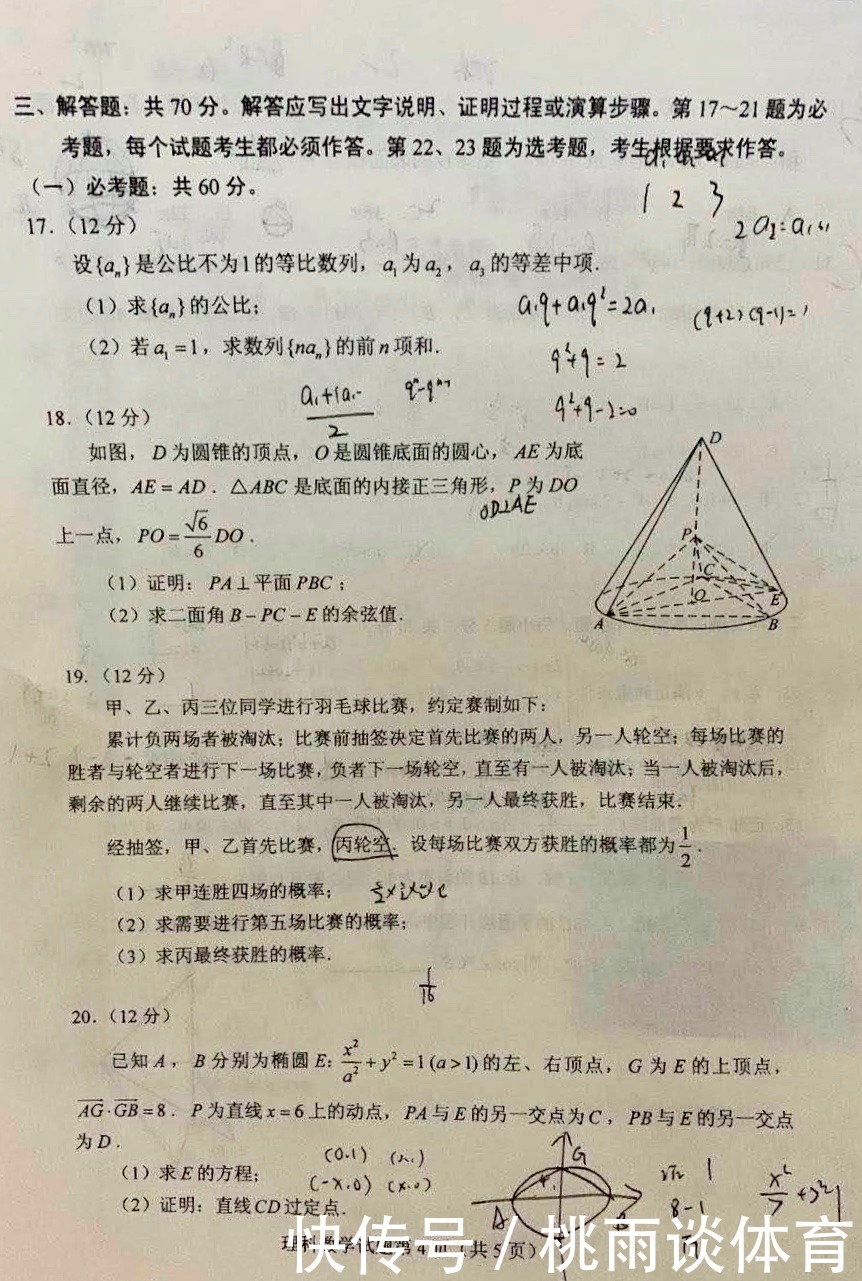 三、解答题：共 70 分。解答应写出文字说明、证明过程或演算步骤。第 17～21 题为必
考题，每个试题考生都必须作答。第 22、23 题为选考题，考生根据要求作答。
（一）必考题：共 60 分。
1 2 3
17.（12 分）
设{aₙ}是公比不为1的等比数列，a₁为a₂，a₃的等差中项.
（1）求{aₙ}的公比；
a₁q+a₁q²=2a₁
（2）若a₁=1，求数列{naₙ}的前n项和.
q²+q=2
q²+q-2=0
18.（12 分）
如图，D为圆锥的顶点，O是圆锥底面的圆心，AE为底
面直径，AE=AD．△ABC是底面的内接正三角形，P为DO
OD⊥AE
上一点，PO=√6/6 DO．
（1）证明：PA⊥平面PBC；
（2）求二面角B-PC-E的余弦值.
D
P
C
O
E
A
B
19.（12 分）
甲、乙、丙三位同学进行羽毛球比赛，约定赛制如下：
累计负两场者被淘汰；比赛前抽签决定首先比赛的两人，另一人轮空；每场比赛的
胜者与轮空者进行下一场比赛，负者下一场轮空，直至有一人被淘汰；当一人被淘汰后，
剩余的两人继续比赛，直至其中一人被淘汰，另一人最终获胜，比赛结束.
经抽签，甲、乙首先比赛，丙轮空．设每场比赛双方获胜的概率都为1/2.
（1）求甲连胜四场的概率；
（2）求需要进行第五场比赛的概率；
（3）求丙最终获胜的概率.
1/16
20.（12 分）
已知A，B分别为椭圆E：x²/a²+y²=1(a>1)的左、右顶点，G为E的上顶点，
AG·GB=8．P为直线x=6上的动点，PA与E的另一交点为C，PB与E的另一交点
为D．
（1）求E的方程；
(0.1)
（2）证明：直线CD过定点.
(-x.0) (x.0)
G
A
8-1
理科数学试题第4页（共5页）
快传号 / 桃雨谈体育